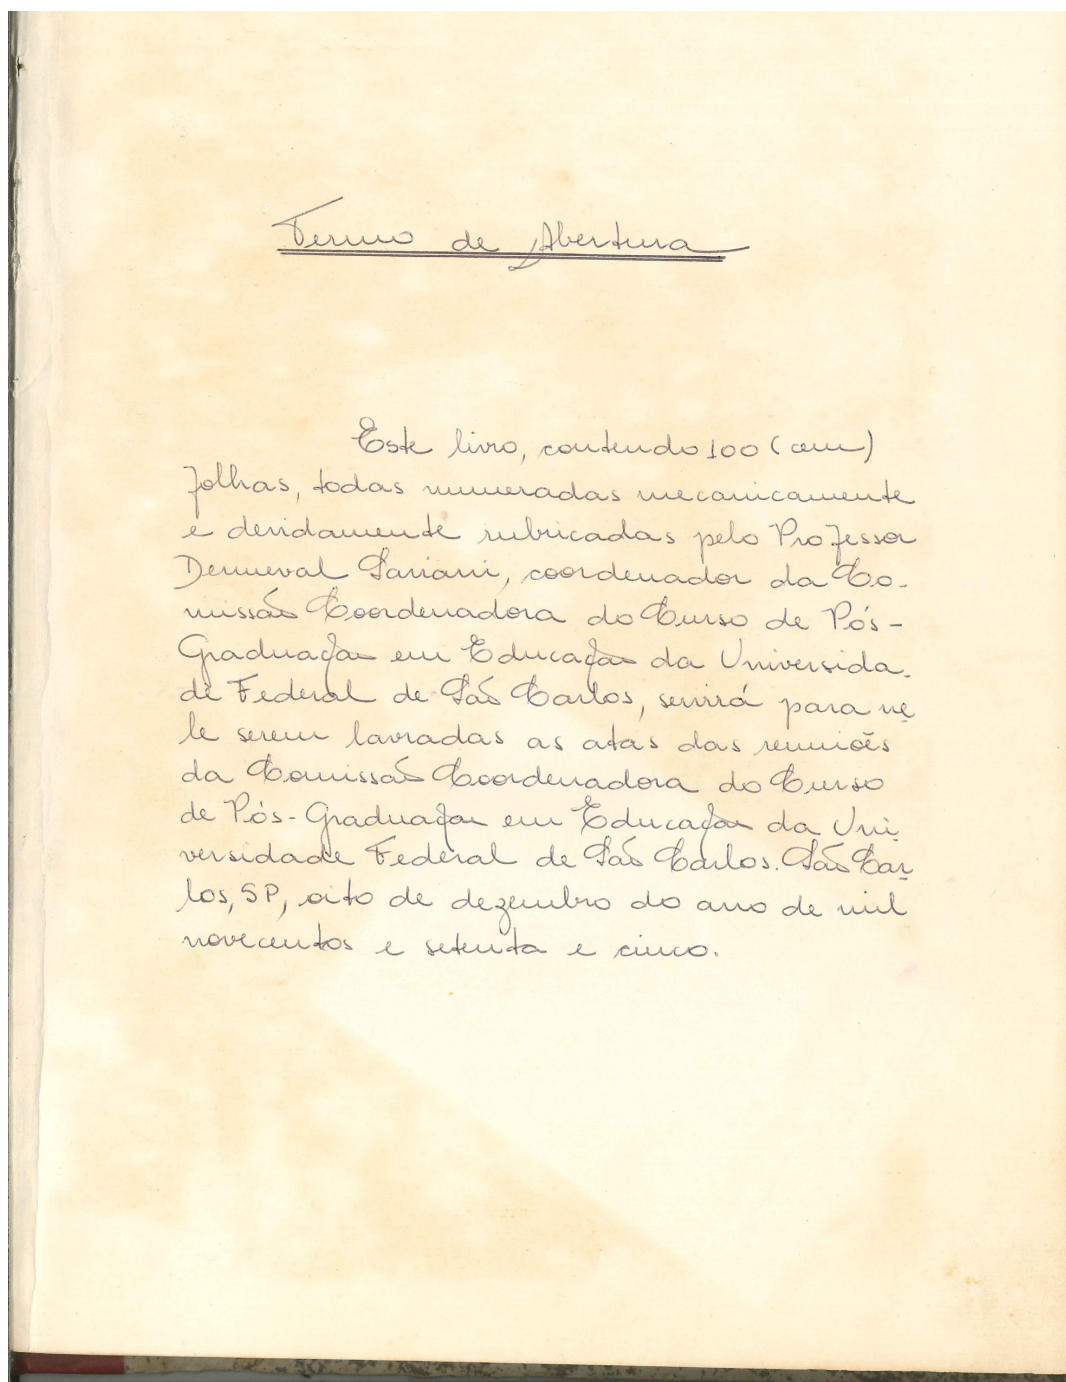 Termo de Abertura
Este livro, contendo 100 (cem)
folhas, todas numeradas mecanicamente
e devidamente rubricadas pelo Professor
Dermeval Saviani, coordenador da Co-
missão Coordenadora do Curso de Pós-
Graduação em Educação da Universida-
de Federal de São Carlos, servirá para ne
le serem lavradas as atas das reuniões
da Comissão Coordenadora do Curso
de Pós-Graduação em Educação da Uni
versidade Federal de São Carlos. São Car
los, SP, oito de dezembro do ano de mil
novecentos e setenta e cinco.